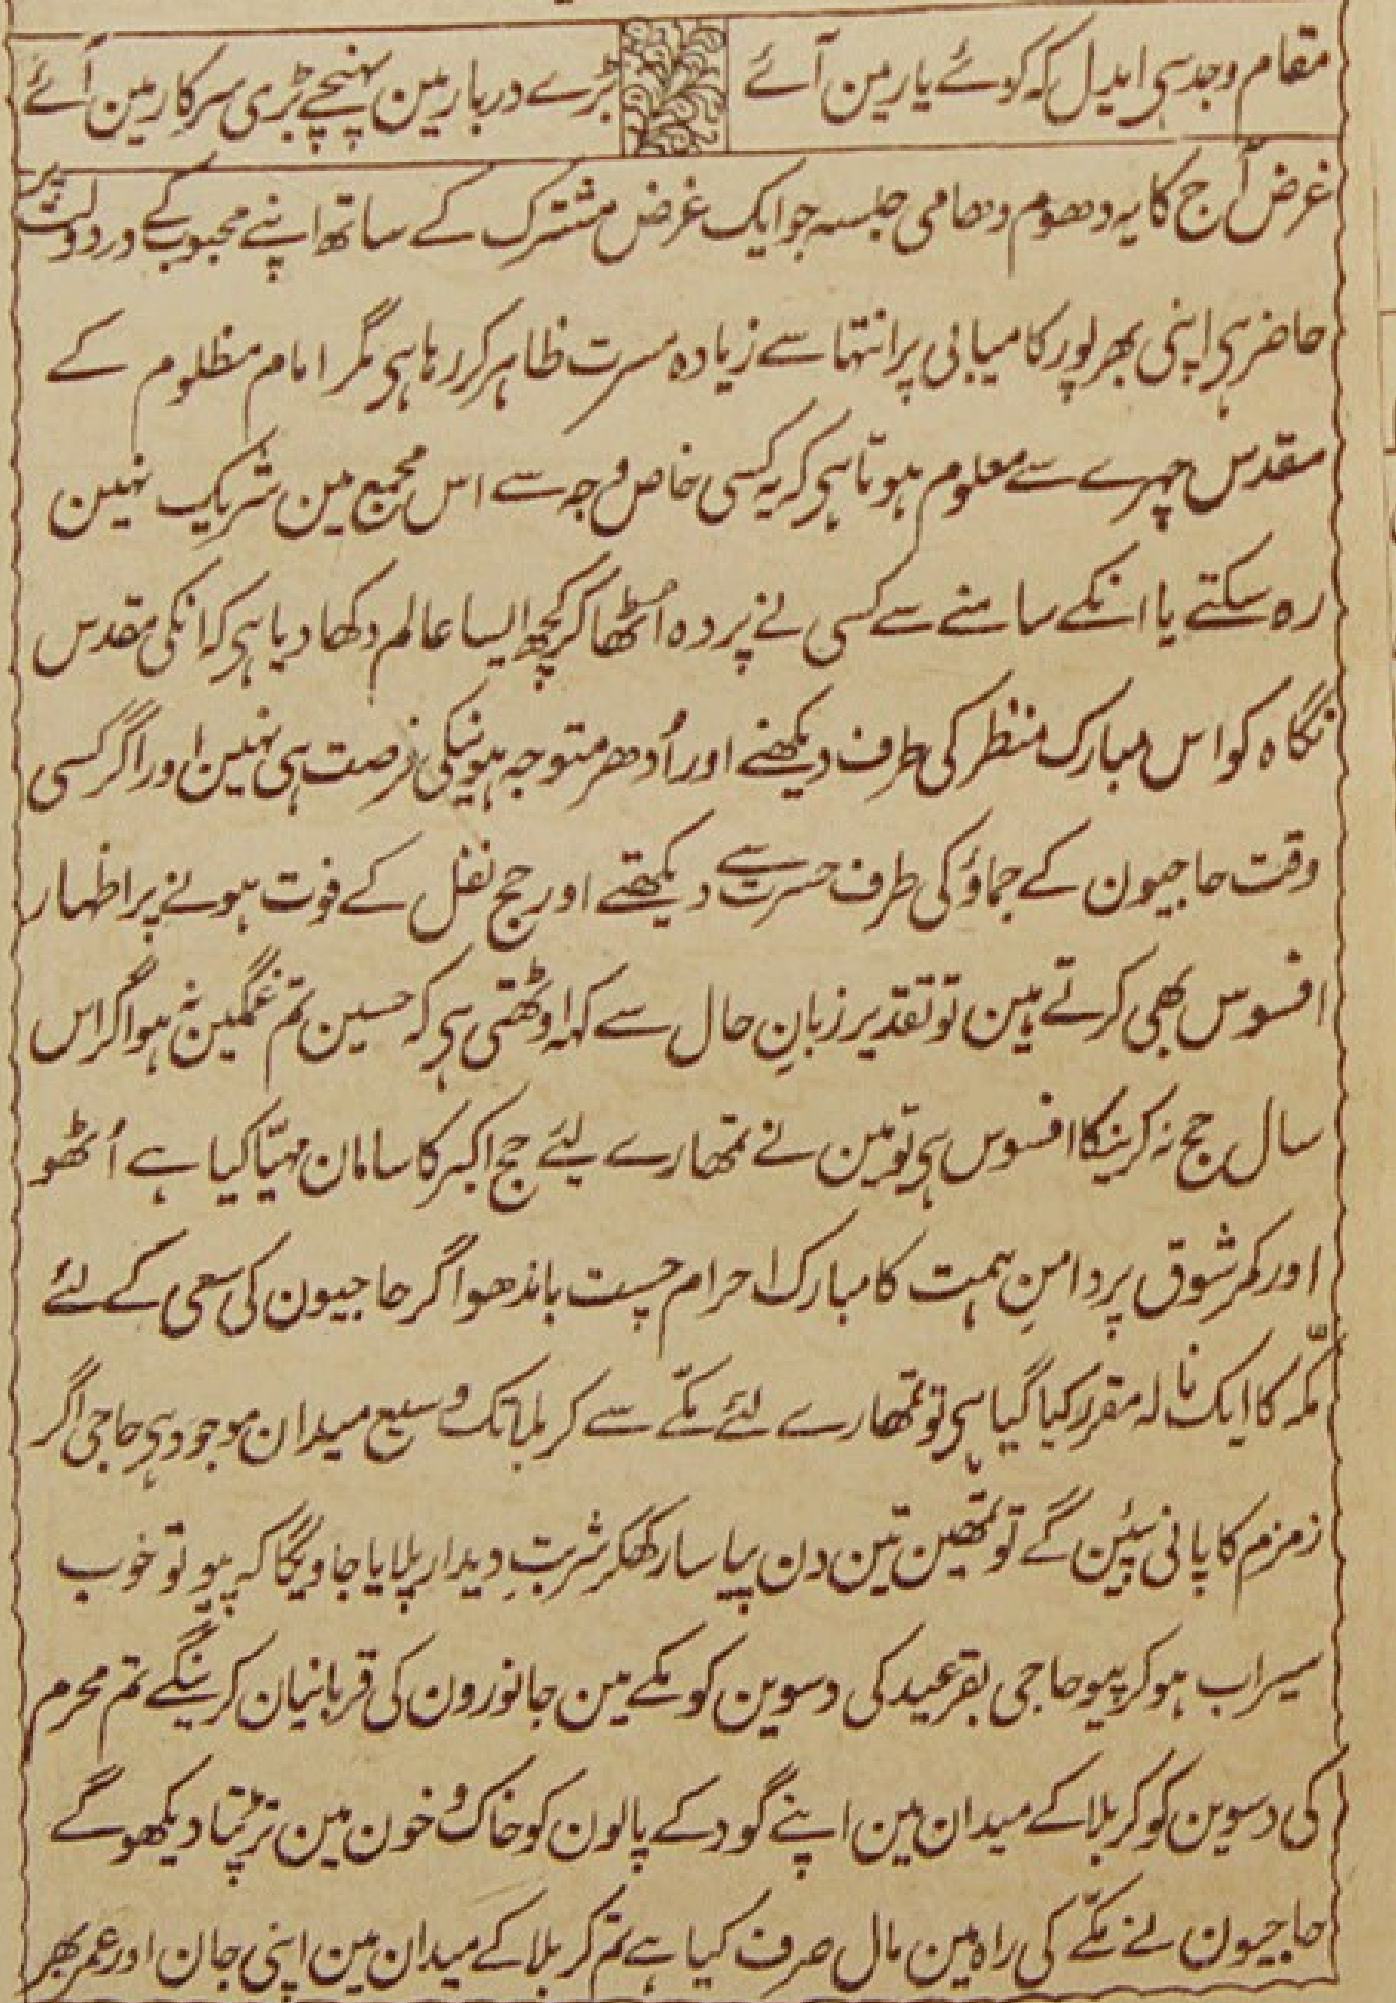 مقام وجد ہی ایدل کہ کوئے یار مین آئے
بڑے دربار مین پہنچے بڑی سرکار مین آئے
غرض آج کا یہ دھوم دھامی جلسہ جو ایک غرض مشترک کے ساتھ اپنے محبوب کے در دولت پر
حاضر ہی اپنی بھرپور کامیابی پر انتہا سے زیادہ مسرت ظاہر کر رہا ہی مگر امام مظلوم کے
مقدس چہرے سے معلوم ہوتا ہی کہ یہ کسی خاص وجہ سے اس مجمع مین شریک نہین
رہ سکتے یا انکے سامنے سے کسی نے پردہ اُٹھا کر کچھ ایسا عالم دکھا دیا ہی کہ انکی مقدس
نگاہ کو اس مبارک منظر کی طرف دیکھنے اور اُدھر متوجہ ہونیکی فرصت ہی نہین اور اگر کسی
وقت حاجیون کے جماؤ کی طرف حسرت سے دیکھتے اور حج نفل کے فوت ہونے پر اظہار
افسوس بھی کرتے ہین تو تقدیر زبانِ حال سے کہہ اوٹھتی ہی کہ حسین تم غمگین نہ ہو اگر اس
سال حج نہ کرنیکا افسوس ہی تو مین نے تمھارے لیئے حج اکبر کا سامان مہیّا کیا ہے اُٹھو
اور کمر شوق پر دامنِ ہمت کا مبارک احرام چست باندھو اگر حاجیون کی سعی کے لئے
مکّہ کا ایک نالہ مقرر کیا گیا ہی تو تمھارے لئے مکّے سے کربلا تک وسیع میدان موجود ہی حاجی اگر
زمزم کا پانی پئین گے تو تمھین تین دن پیاسا رکھکر شربتِ دیدار پلایا جاویگا کہ پیو تو خوب
سیراب ہو کر پیو حاجی بقرعید کی دسوین کو مکے مین جانورون کی قربانیان کرینگے تم محرم
کی دسوین کو کربلا کے میدان مین اپنے گود کے پالون کو خاک و خون مین تڑپتا دیکھوگے
حاجیون نے مکّے کی راہ مین مال صرف کیا ہے تم کربلا کے میدان مین اپنی جان اور عمر بھر